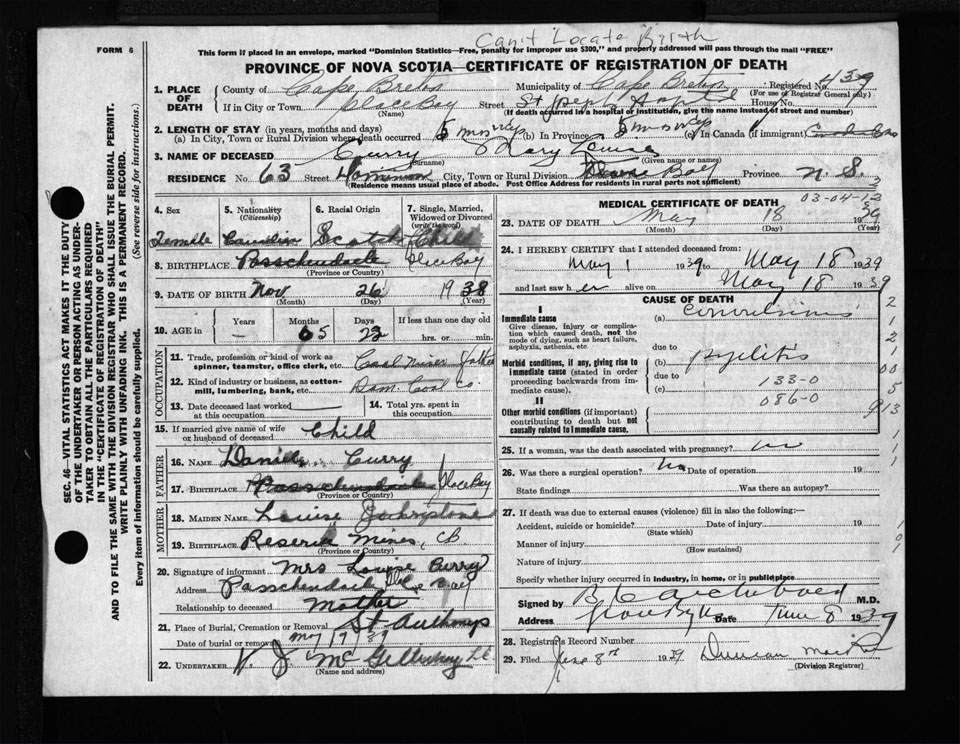 Can't Locate Birth
FORM 6
This form if placed in an envelope, marked "Dominion Statistics—Free, penalty for improper use $300," and properly addressed will pass through the mail "FREE"
PROVINCE OF NOVA SCOTIA—CERTIFICATE OF REGISTRATION OF DEATH
1. PLACE OF DEATH
County of Cape Breton Municipality of Cape Breton Registered No. 439
(For use of Registrar General only)
If in City or Town Glace Bay Street St Josephs Hospital House No.
(Name) (If death occurred in a hospital or institution, give the name instead of street and number)
2. LENGTH OF STAY (in years, months and days)
(a) In City, Town or Rural Division where death occurred 5 mos (b) In Province 5 mos (c) In Canada (if immigrant)
3. NAME OF DECEASED Curry Mary Louise
(Surname) (Given name or names)
RESIDENCE No. 63 Street Dominion City, Town or Rural Division Bay Province N. S.
(Residence means usual place of abode. Post Office Address for residents in rural parts not sufficient)
4. Sex 5. Nationality (Citizenship) 6. Racial Origin 7. Single, Married, Widowed or Divorced (write the word)
Female Canadian Scotch Child
8. BIRTHPLACE Passchendaele Glace Bay
(Province or Country)
9. DATE OF BIRTH Nov 26 1938
(Month) (Day) (Year)
10. AGE in Years Months Days If less than one day old
05 22 hrs. or min.
OCCUPATION
11. Trade, profession or kind of work as spinner, teamster, office clerk, etc. Coal Miner Father
12. Kind of industry or business, as cotton-mill, lumbering, bank, etc. Dom. Coal Co.
13. Date deceased last worked at this occupation 14. Total yrs. spent in this occupation
15. If married give name of wife or husband of deceased Child
FATHER
16. NAME Daniel Curry
17. BIRTHPLACE Passchendaele Glace Bay
(Province or Country)
MOTHER
18. MAIDEN NAME Louise
19. BIRTHPLACE Reserve Mines, CB
(Province or Country)
20. Signature of informant Mrs Louise Curry
Address Passchendaele Bay
Relationship to deceased Mother
21. Place of Burial, Cremation or Removal St Anthonys
Date of burial or removal May 19 39
22. UNDERTAKER V. J. Mc
(Name and address)
MEDICAL CERTIFICATE OF DEATH
03-04-12
23. DATE OF DEATH May 18 1939
(Month) (Day) (Year)
24. I HEREBY CERTIFY that I attended deceased from:
May 1 1939 to May 18 1939
and last saw her alive on May 18 1939
CAUSE OF DEATH
I
Immediate cause (a) convulsions
Give disease, injury or complication which caused death, not the mode of dying, such as heart failure, asphyxia, asthenia, etc.
due to
Morbid conditions, if any, giving rise to immediate cause (stated in order proceeding backwards from immediate cause).
(b) pyelitis
due to
(c) 133-0
086-0
II
Other morbid conditions (if important) contributing to death but not causally related to immediate cause.
25. If a woman, was the death associated with pregnancy? no
26. Was there a surgical operation? no Date of operation 19
State findings Was there an autopsy?
27. If death was due to external causes (violence) fill in also the following:
Accident, suicide or homicide? Date of injury 19
(State which)
Manner of injury
(How sustained)
Nature of injury
Specify whether injury occurred in industry, in home, or in public place
Signed by M.D.
Address Glace Bay Date June 8 1939
28. Registrar's Record Number
29. Filed June 8th 1939 Duncan
(Division Registrar)
SEC. 46—VITAL STATISTICS ACT MAKES IT THE DUTY
OF THE UNDERTAKER OR PERSON ACTING AS UNDER-
TAKER TO OBTAIN ALL THE PARTICULARS REQUIRED
IN THE "CERTIFICATE OF REGISTRATION OF DEATH" AND TO FILE THE SAME WITH THE DIVISION REGISTRAR WHO SHALL ISSUE THE BURIAL PERMIT.
WRITE PLAINLY WITH UNFADING INK. THIS IS A PERMANENT RECORD.
Every item of information should be carefully supplied. (See reverse side for instructions).